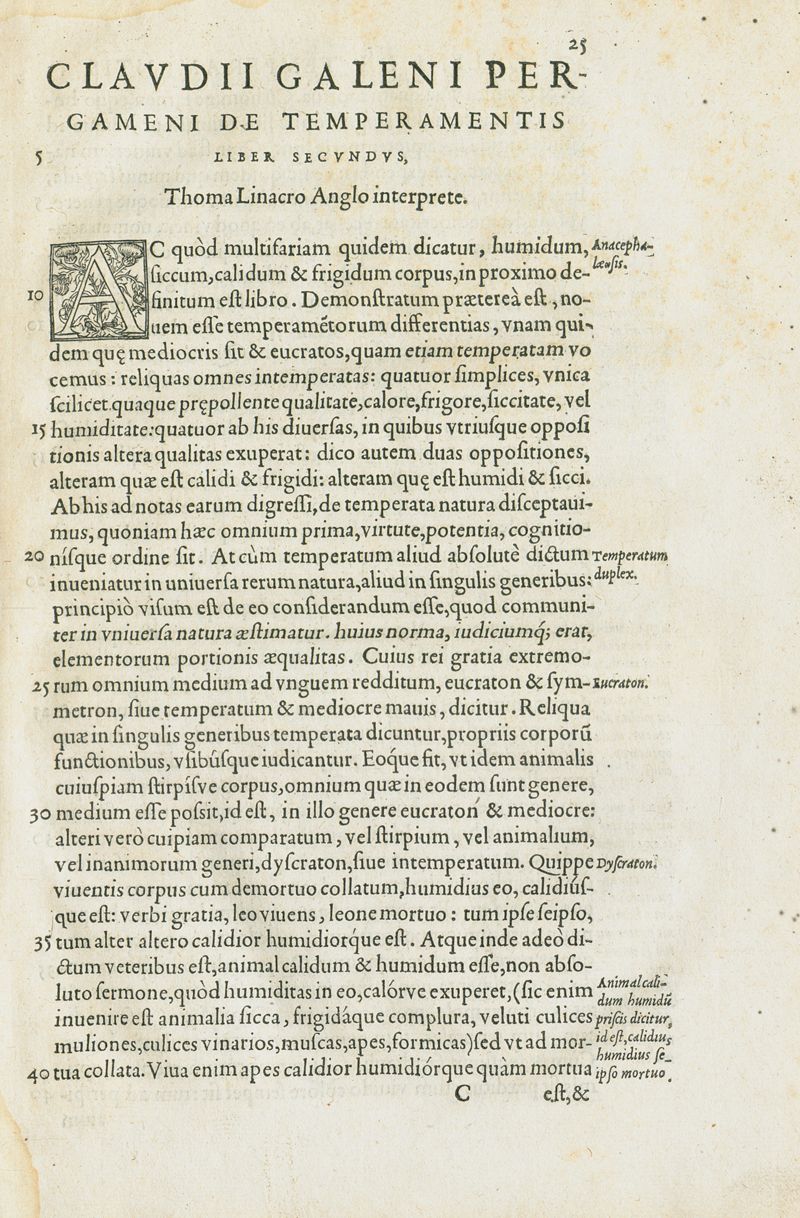 25
CLAVDII GALENI PER-
GAMENI DE TEMPERAMENTIS
5 LIBER SECVNDVS,
Thoma Linacro Anglo interprete.
AC quòd multifariam quidem dicatur, humidum, Anacepha-
ſiccum,calidum & frigidum corpus,in proximo de- leoſis.
10 finitum eſt libro. Demonſtratum prætereà eſt, no-
uem eſſe temperamẽtorum differentias, vnam qui-
dem quę mediocris ſit & eucratos,quam etiam temperatam vo
cemus : reliquas omnes intemperatas: quatuor ſimplices, vnica
ſcilicet quaque prępollente qualitate,calore,frigore,ſiccitate, vel
15 humiditate:quatuor ab his diuerſas, in quibus vtriuſque oppoſi
tionis altera qualitas exuperat: dico autem duas oppoſitiones,
alteram quæ eſt calidi & frigidi: alteram quę eſt humidi & ſicci.
Ab his ad notas earum digreſſi,de temperata natura diſceptaui-
mus, quoniam hæc omnium prima,virtute,potentia, cognitio-
20 níſque ordine ſit. At cùm temperatum aliud abſolutè dictum Temperatum
inueniatur in uniuerſa rerum natura,aliud in ſingulis generibus: duplex.
principiò viſum eſt de eo conſiderandum eſſe,quod communi-
ter in vniuerſa natura æſtimatur. huius norma, iudiciumq́; erat,
elementorum portionis æqualitas. Cuius rei gratia extremo-
25 rum omnium medium ad vnguem redditum, eucraton & ſym- Eucraton.
metron, ſiue temperatum & mediocre mauis, dicitur. Reliqua
quæ in ſingulis generibus temperata dicuntur,propriis corporũ
functionibus, vſibúſque iudicantur. Eoq́ue fit, vt idem animalis
cuiuſpiam ſtirpíſve corpus,omnium quæ in eodem ſunt genere,
30 medium eſſe poſsit,id eſt, in illo genere eucraton & mediocre:
alteri verò cuipiam comparatum, vel ſtirpium, vel animalium,
vel inanimorum generi,dyſcraton,ſiue intemperatum. Quippe Dyſcraton.
viuentis corpus cum demortuo collatum,humidius eo, calidiúſ-
que eſt: verbi gratia, leo viuens, leone mortuo : tum ipſe ſeipſo,
35 tum alter altero calidior humidiorq́ue eſt. Atque inde adeò di-
ctum veteribus eſt,animal calidum & humidum eſſe,non abſo-
luto ſermone,quòd humiditas in eo,calórve exuperet,(ſic enim Animal cali-
dum humidũ
inuenire eſt animalia ſicca, frigidáque complura, veluti culices priſcis dicitur,
muliones,culices vinarios,muſcas,apes,formicas)ſed vt ad mor- id eſt,calidius
humidius ſe-
40 tua collata. Viua enim apes calidior humidiórque quàm mortua ipſo mortuo.
C eſt,&